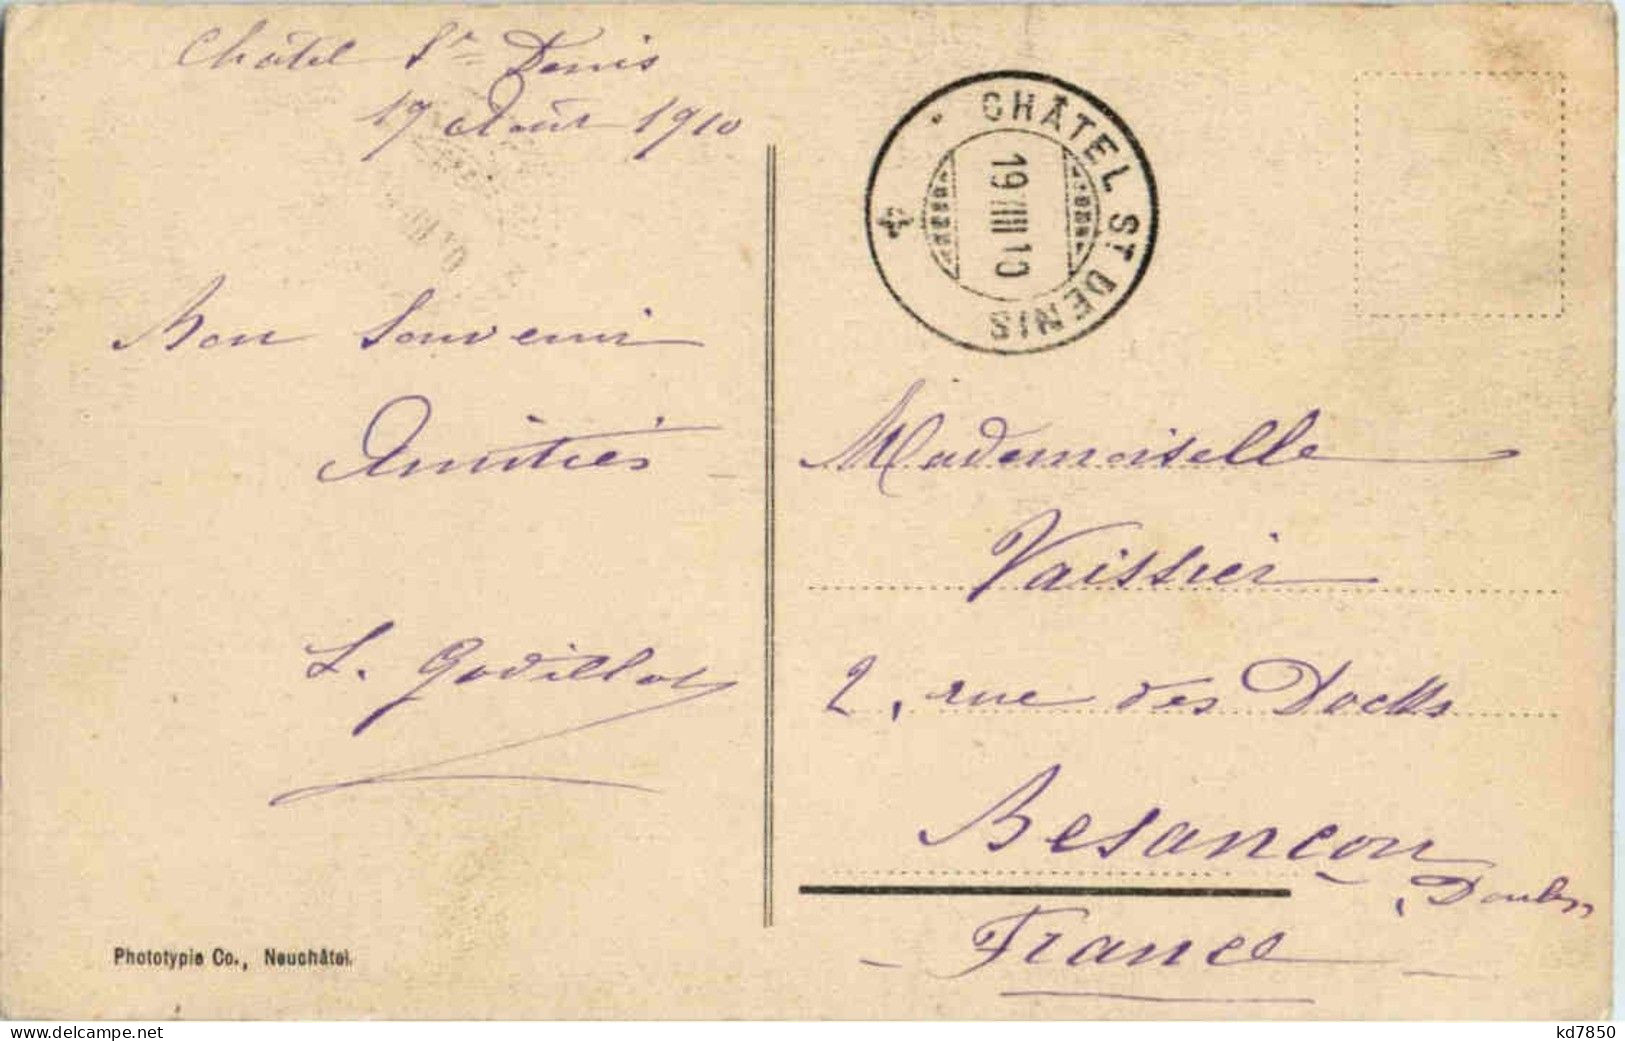 Châtel St Denis
17 Août 1910
Bon souvenir
Amitiés
L. Godillot
Phototypie Co., Neuchâtel.
CHÂTEL ST DENIS
19 VIII 10
Mademoiselle
Vaissier
2, rue des Docks
Besançon
(Doubs)
- France -
kd7850